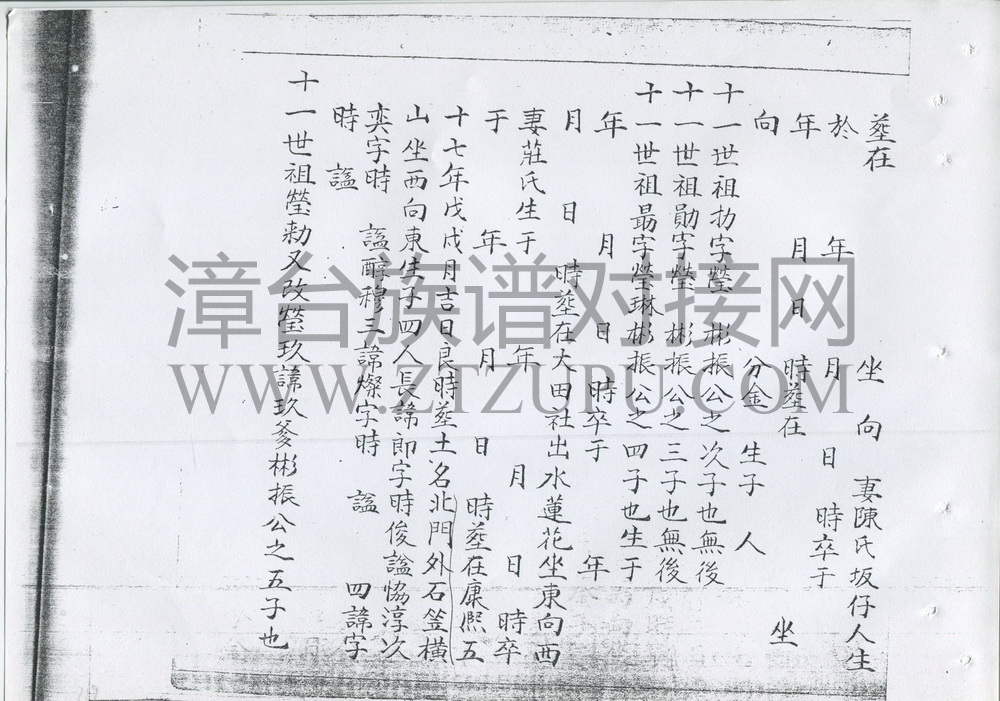 塟在　　坐　向　妻陳氏坂仔人生
於　年　月　日　時卒于
年　月　日　時塟在　　坐
向　分金　生子　人
十一世祖扐字瑩　彬振公之次子也無後
十一世祖勛字瑩　彬振公之三子也無後
十一世祖勗字瑩琳彬振公之四子也生于
年　月　日　時卒于　年
月　日　時塟在大田社出水蓮花坐東向西
妻莊氏生于　年　月　日　時卒
于　年　月　日　時塟在康熙五
十七年戊戌月吉日良時塟土名北門外石笠橫
山坐西向東生子四人長諱郎字時俊謚恊淳次
奕字時　謚醇穆三諱燦字時　謚
時　謚　四諱字
十一世祖瑩勑又改瑩玖諱玖爹彬振公之五子也
漳台族谱对接网
WWW.ZTZUPU.COM